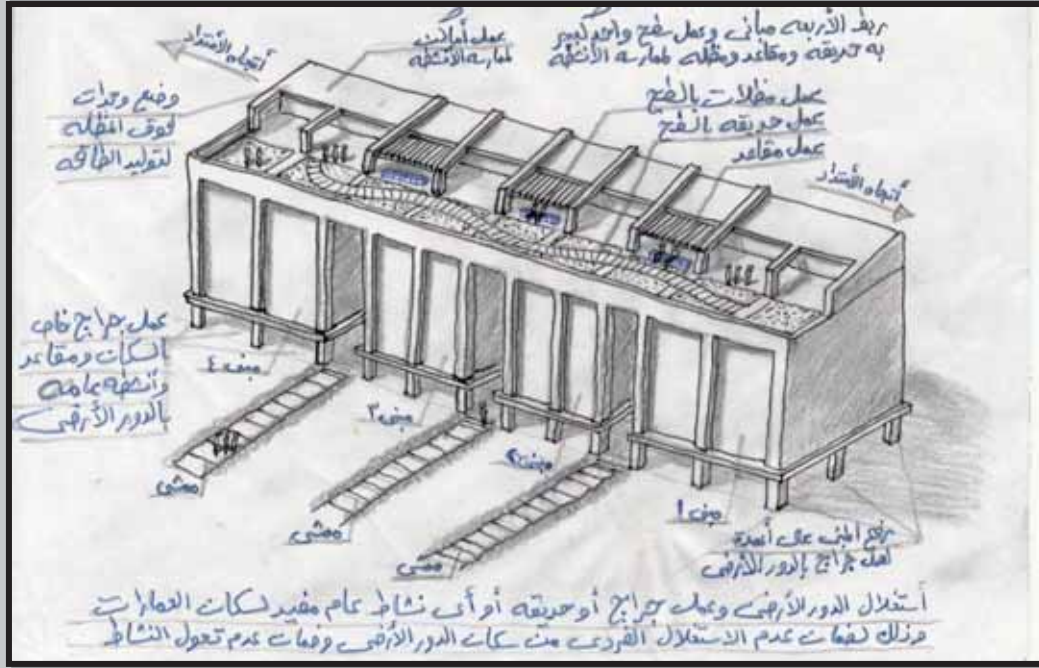 ربط الأربعه مبانى وعمل سطح واحد كبير
به حديقه ومقاعد ومظله لممارسه الأنشطه
عمل أماكن
لممارسه الأنشطه
أتجاه الأمتداد
وضع وحدات
فوق المظله
لتوليد الطاقه
عمل مظلات بالسطح
عمل حديقه بالسطح
عمل مقاعد
أتجاه الأمتداد
عمل جراج خاص
بالسكان ومقاعد
وأنشطه عامه
بالدور الأرضى
مبنى ٤
مبنى ٣
مبنى ٢
مبنى ١
ممشى
ممشى
ممشى
رفع المبنى على أعمدة
لعمل جراج بالدور الأرضى
أستغلال الدور الأرضى وعمل جراج أو حديقه أو أى نشاط عام مفيد لسكان العمارات
وذلك لضمان عدم الاستغلال الفردى من سكان الدور الأرضى وضمان عدم تحول النشاط